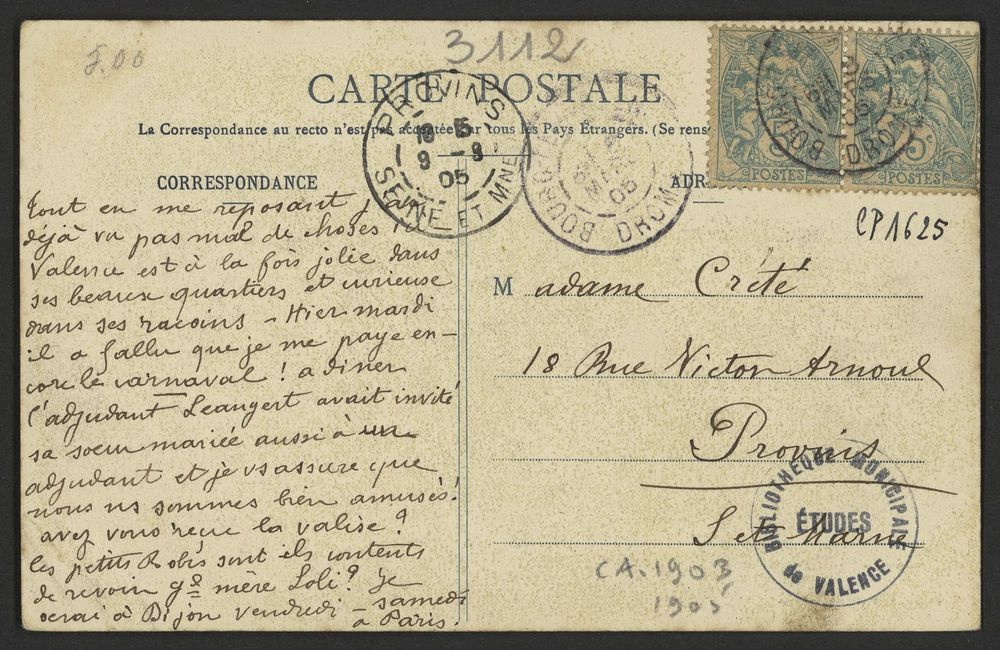 5.00
3112
CARTE POSTALE
La Correspondance au recto n'est pas acceptée par tous les Pays Étrangers. (Se rens
CORRESPONDANCE
ADR
PROVINS
9 - 3
05
SEINE ET MNE
BOURG
DROM
05
BOURG
DROM
POSTES
5c
POSTES
CP1625
Tout en me reposant j'ai
déjà vu pas mal de choses ici
Valence est à la fois jolie dans
ses beaux quartiers et curieuse
dans ses racoins - Hier mardi
il a fallu que je me paye en-
core le carnaval ! a diner
l'adjudant Leangert avait invité
sa soeur mariée aussi à un
adjudant et je vs assure que
nous ns sommes bien amusés!
avez vous reçue la valise ?
les petits Robis sont ils contents
de revoir gde mère Loli ? Je
serai à Dijon vendredi - samedi
a Paris.
M adame Crété
18 Rue Victor Arnoul
Provins
S et Marne
BIBLIOTHÈQUE MUNICIPALE
ÉTUDES
de VALENCE
CA.1903
1905